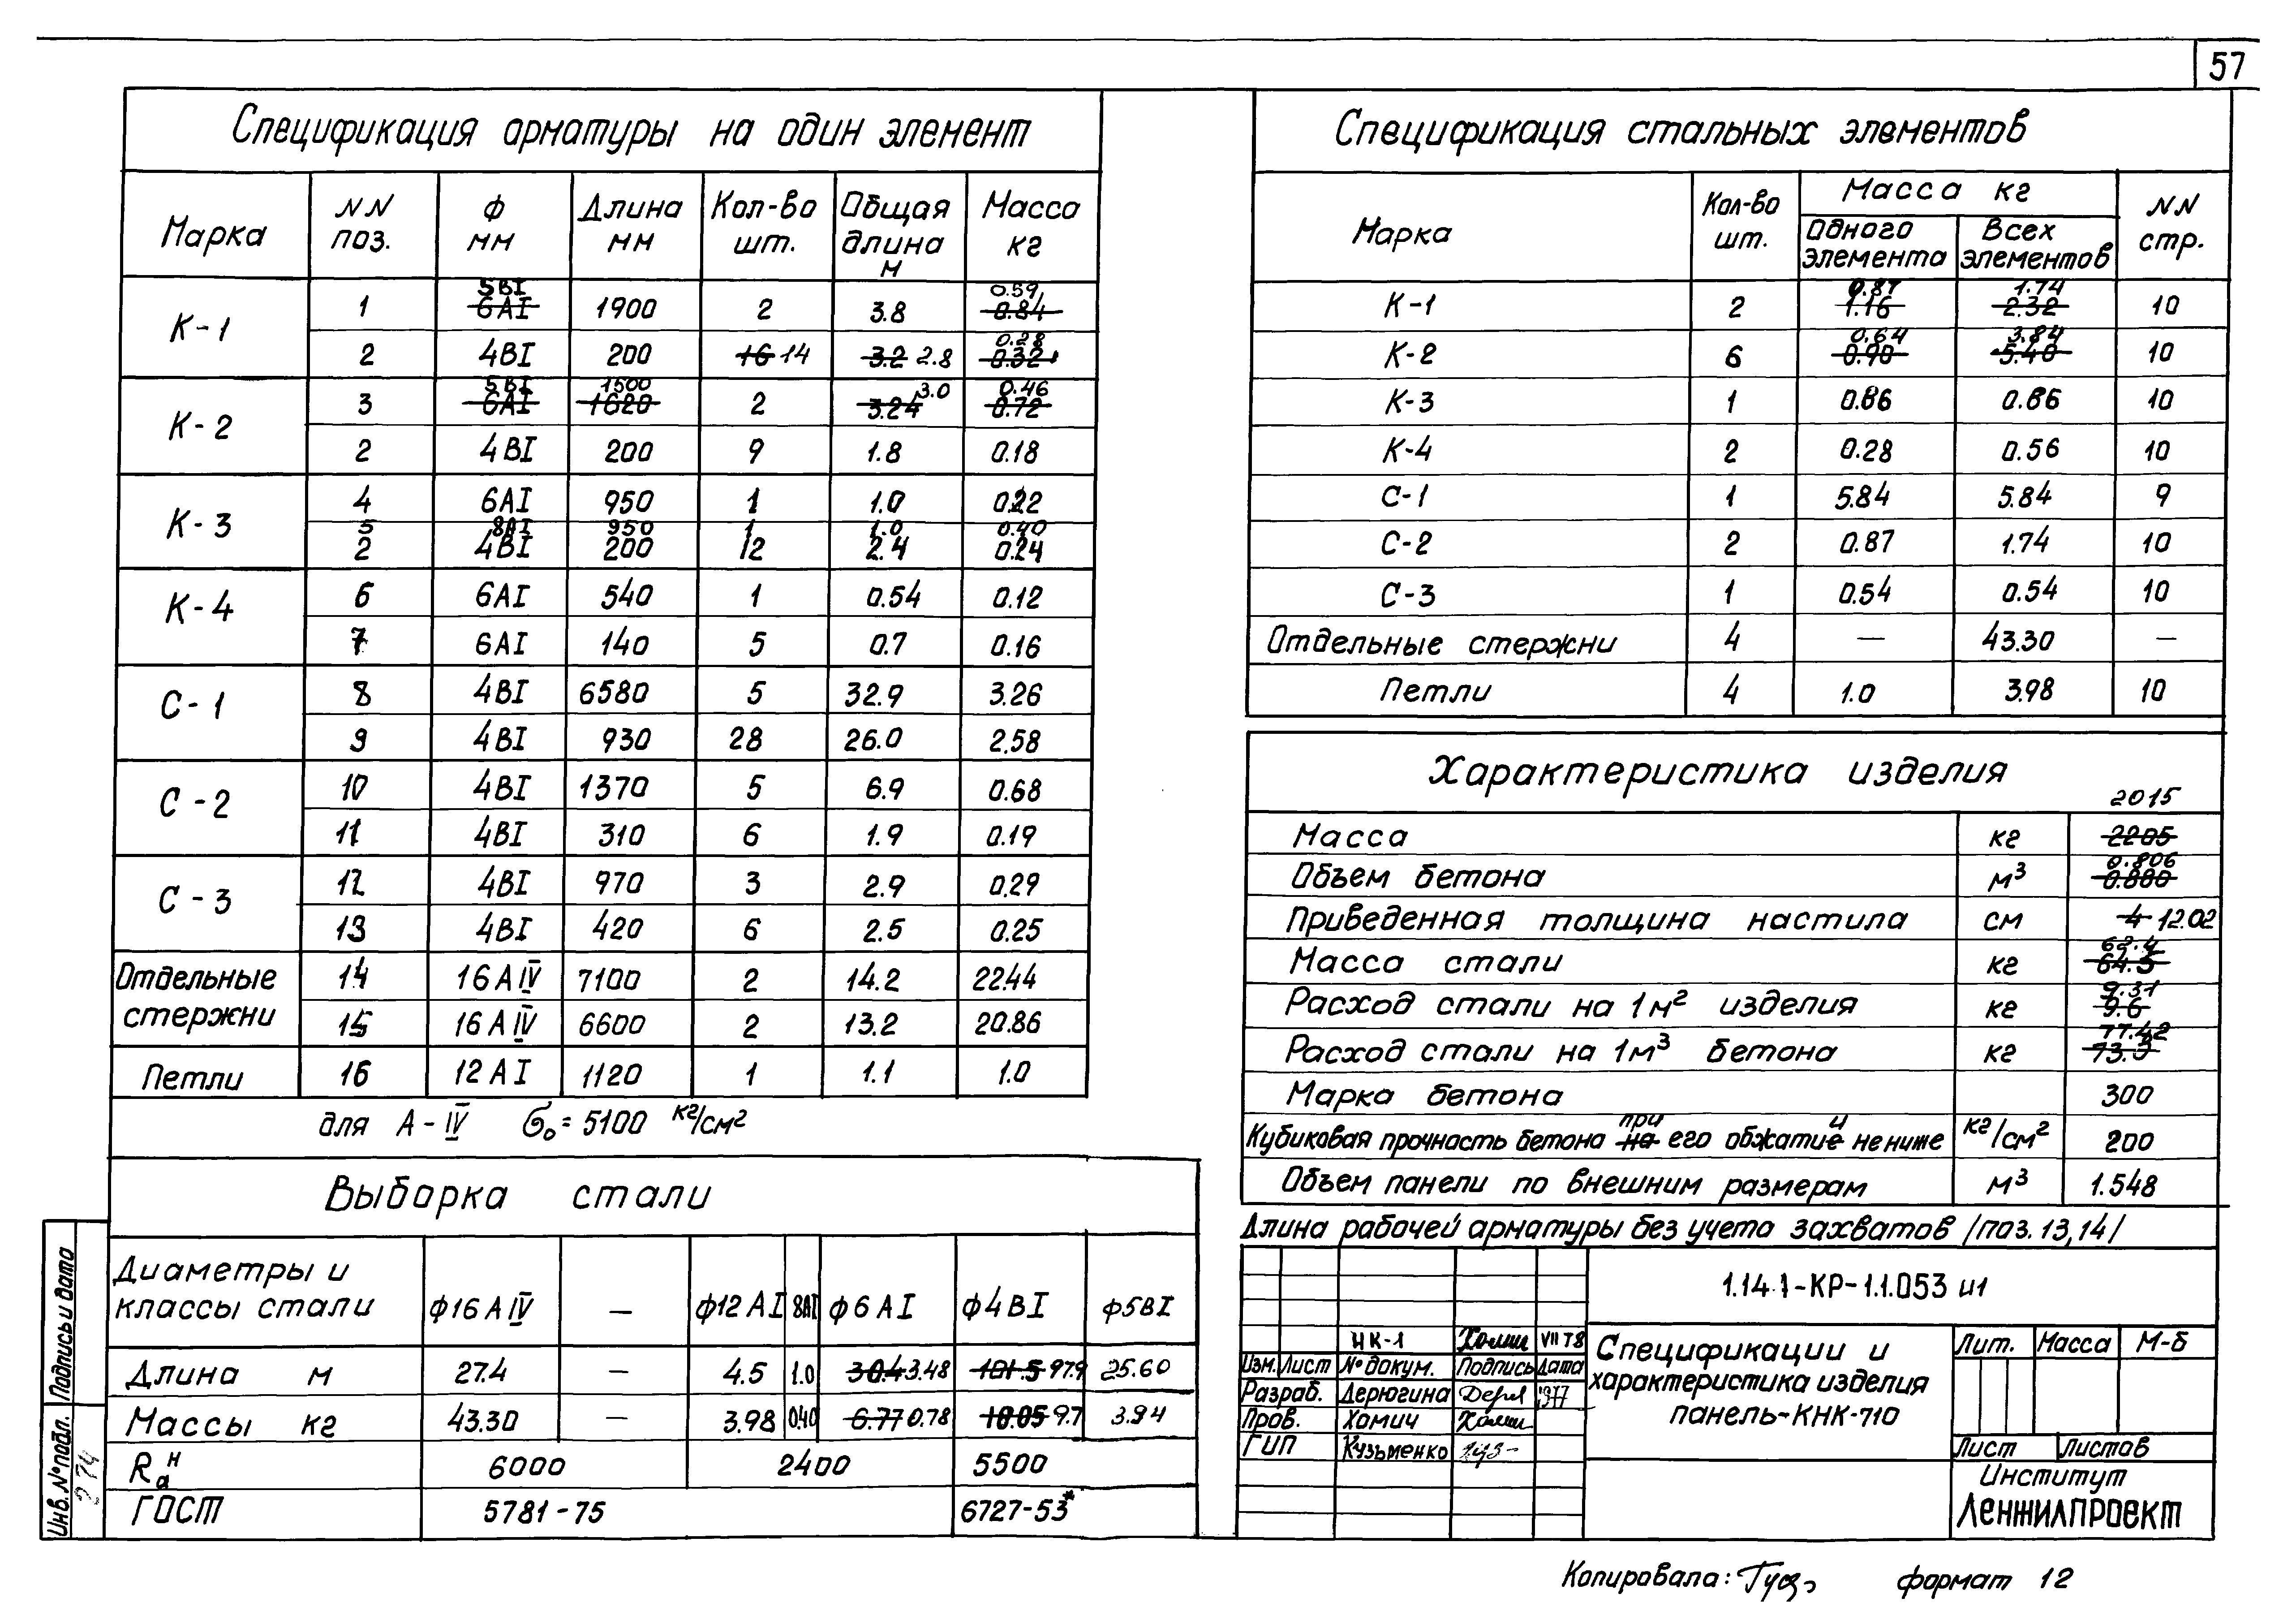 57
Спецификация арматуры на один элемент
Марка NN поз. Ф мм Длина мм Кол-во шт. Общая длина м Масса кг
К-1 1 5ВI 6АI 1900 2 3.8 0.59 0.84
2 4ВI 200 16 14 3.2 2.8 0.28 0.32
К-2 3 5ВI 6АI 1500 1620 2 3.0 3.24 0.46 0.72
2 4ВI 200 9 1.8 0.18
К-3 4 6АI 950 1 1.0 0.22
5 8АI 950 1 1.0 0.40
2 4ВI 200 12 2.4 0.24
К-4 6 6АI 540 1 0.54 0.12
7 6АI 140 5 0.7 0.16
С-1 8 4ВI 6580 5 32.9 3.26
9 4ВI 930 28 26.0 2.58
С-2 10 4ВI 1370 5 6.9 0.68
11 4ВI 310 6 1.9 0.19
С-3 12 4ВI 970 3 2.9 0.29
13 4ВI 420 6 2.5 0.25
Отдельные стержни 14 16АIV 7100 2 14.2 22.44
15 16АIV 6600 2 13.2 20.86
Петли 16 12АI 1120 1 1.1 1.0
для А-IV σ₀=5100 кг/см²
Выборка стали
Диаметры и классы стали ф16АIV — ф12АI 8АI ф6АI ф4ВI ф5ВI
Длина м 27.4 — 4.5 1.0 30.4 3.48 101.5 97.9 25.60
Массы кг 43.30 — 3.98 0.40 6.77 0.78 10.05 9.7 3.94
Rан 6000 2400 5500
ГОСТ 5781-75 6727-53*
Спецификация стальных элементов
Марка Кол-во шт. Масса кг Одного элемента Всех элементов NN стр.
К-1 2 0.87 1.16 1.74 2.32 10
К-2 6 0.64 0.90 3.84 5.40 10
К-3 1 0.86 0.86 10
К-4 2 0.28 0.56 10
С-1 1 5.84 5.84 9
С-2 2 0.87 1.74 10
С-3 1 0.54 0.54 10
Отдельные стержни 4 — 43.30 —
Петли 4 1.0 3.98 10
Характеристика изделия
Масса кг 2015 2205
Объем бетона м³ 0.806 0.880
Приведенная толщина настила см 4 12.02
Масса стали кг 62.4 64.5
Расход стали на 1м² изделия кг 9.31 9.6
Расход стали на 1м³ бетона кг 77.42 73.3
Марка бетона 300
Кубиковая прочность бетона при на его обжатии не ниже кг/см² 200
Объем панели по внешним размерам м³ 1.548
Длина рабочей арматуры без учета захватов /поз. 13,14/
1.141-КР-1.1.053 и1
НК-1 VII 78
Изм. Лист № докум. Подпись Дата
Разраб. Дерюгина 1977
Пров. Хомич
ГИП Кузьменко
Спецификации и
характеристика изделия
панель-КНК-710
Лит. Масса М-б
Лист Листов
Институт
Ленжилпроект
Подпись и дата
Инв. № подл.
274
Копировала: формат 12